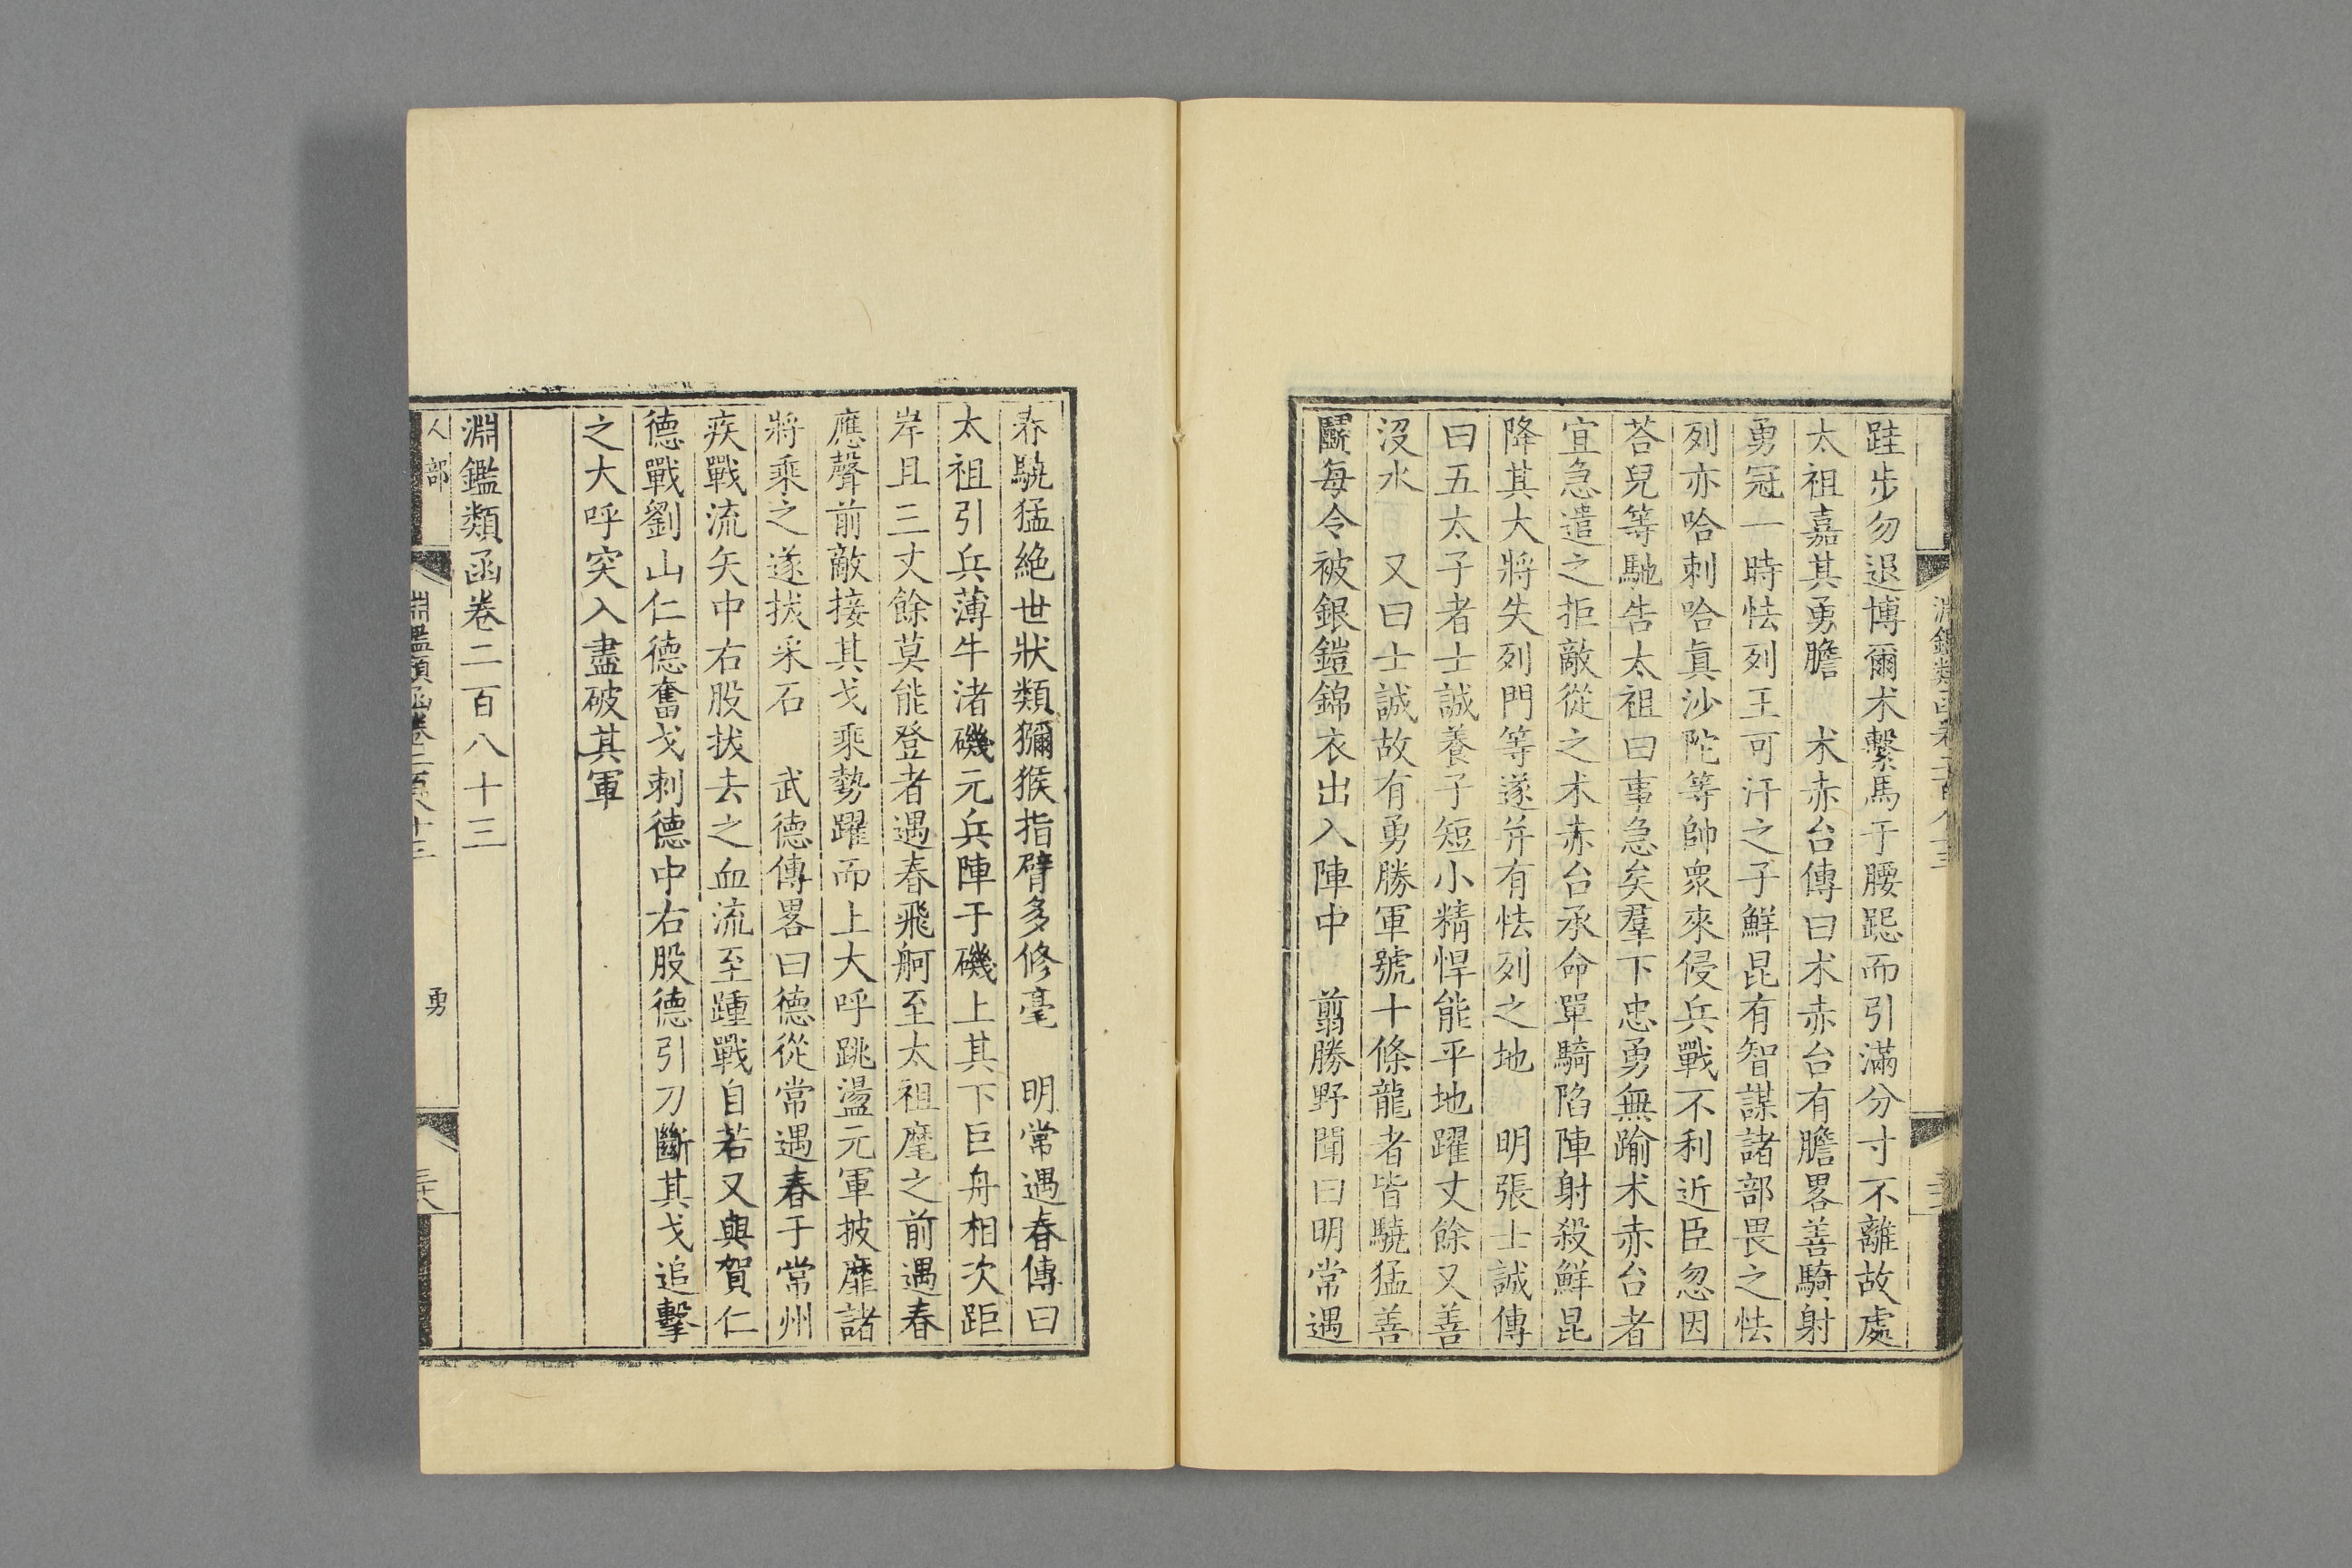 跬步勿退博爾朮繫馬于腰跽而引滿分寸不離故處
太祖嘉其勇膽　朮赤台傳曰朮赤台有膽畧善騎射
勇冠一時怯列王可汗之子鮮昆有智謀諸部畏之怯
列亦哈剌哈真沙陀等帥衆來侵兵戰不利近臣忽因
荅兒等馳告太祖曰事急矣羣下忠勇無踰朮赤台者
宜急遣之拒敵從之朮赤台承命單騎陷陣射殺鮮昆
降其大將失列門等遂并有怯列之地　明張士誠傳
曰五太子者士誠養子短小精悍能平地躍丈餘又善
沒水　又曰士誠故有勇勝軍號十條龍者皆驍猛善
鬬每令被銀鎧錦衣出入陣中　翦勝野聞曰明常遇
春驍猛絶世狀類獼猴指臂多修毫　明常遇春傳曰
太祖引兵薄牛渚磯元兵陣于磯上其下巨舟相次距
岸且三丈餘莫能登者遇春飛舸至太祖麾之前遇春
應聲前敵接其戈乘勢躍而上大呼跳盪元軍披靡諸
將乘之遂拔采石　武德傳畧曰德從常遇春于常州
疾戰流矢中右股拔去之血流至踵戰自若又與賀仁
德戰劉山仁德奮戈刺德中右股德引刀斷其戈追擊
之大呼突入盡破其軍
淵鑑類函卷二百八十三
人部　淵鑑類函卷二百八十三　勇